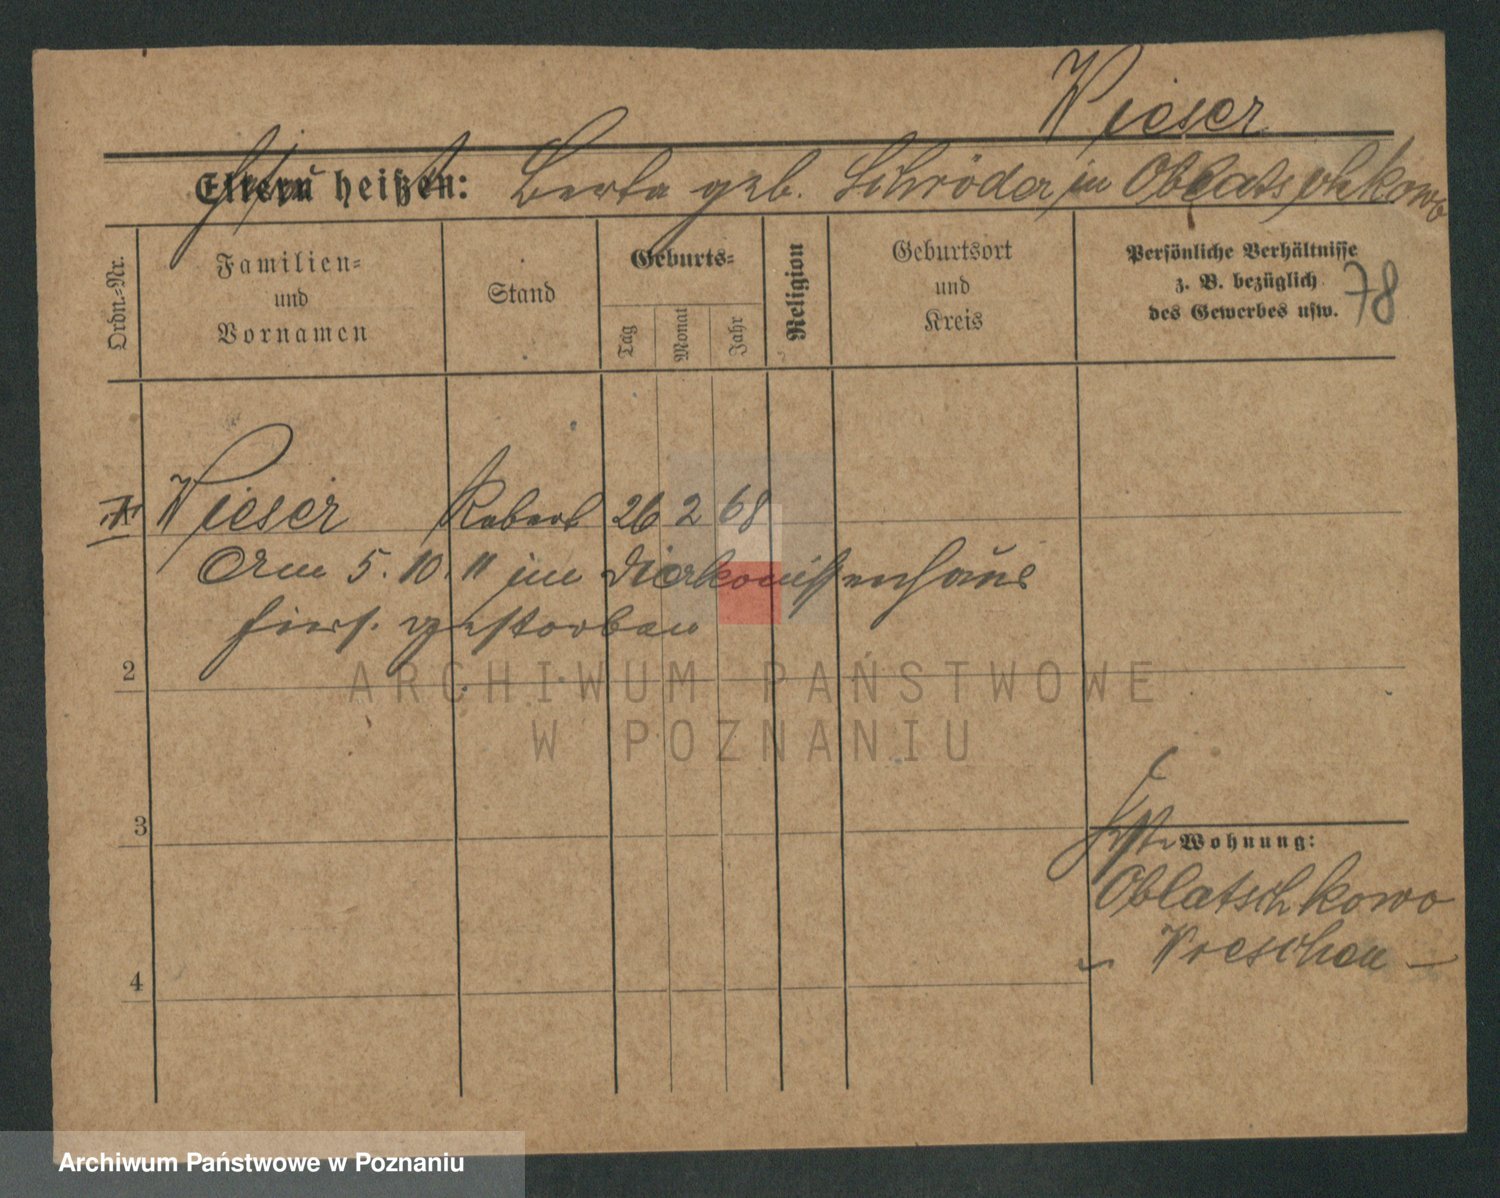 Wieser
Eltern heißen: Berta geb. Schröder in Oblatschkowo
Ordn.-Nr.
Familien-
und
Vornamen
Stand
Geburts-
Tag
Monat
Jahr
Religion
Geburtsort
und
Kreis
Persönliche Verhältnisse
z. B. bezüglich
des Gewerbes usw.
78
Wieser Robert 26 2 68
Am 5. 10. 11 im Diakonissenhaus
hiers. gestorben
2
ARCHIWUM PAŃSTWOWE
W POZNANIU
3
Wohnung:
Oblatschkowo
Wreschen
4
Archiwum Państwowe w Poznaniu